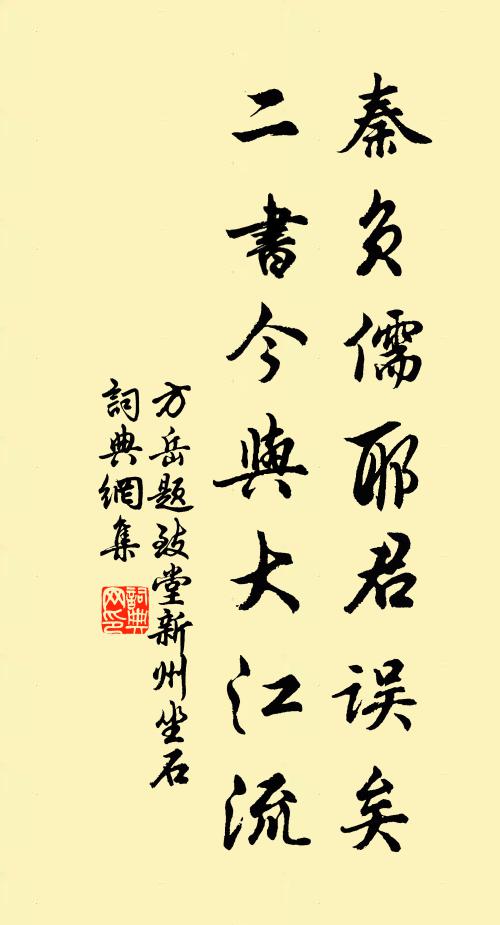 秦负儒耶君误矣
二書今與大江流
方岳题致堂新州坐石
詞典網集
詞典网印